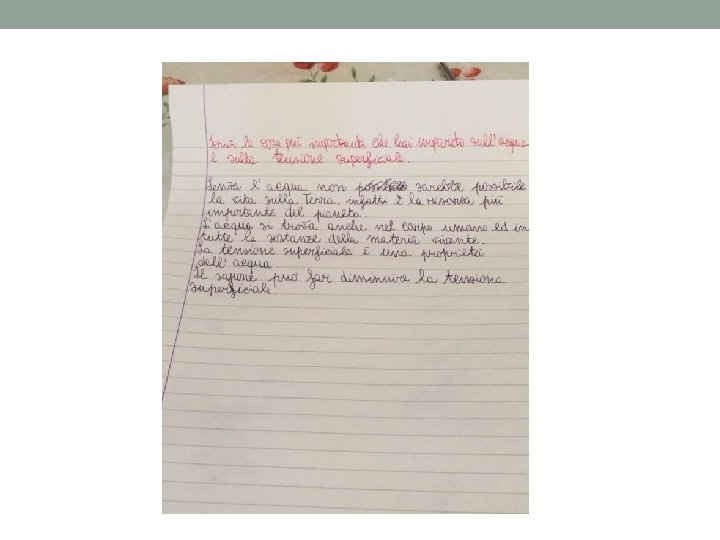 Scrivi le cose più importanti che hai imparato sull'acqua
e sulla tensione superficiale.
Senza l'acqua non sarebbe possibile
la vita sulla Terra, infatti è la risorsa più
importante del pianeta.
L'acqua si trova anche nel corpo umano ed in
tutte le sostanze della materia vivente.
La tensione superficiale è una proprietà
dell'acqua.
Il sapone può far diminuire la tensione
superficiale.